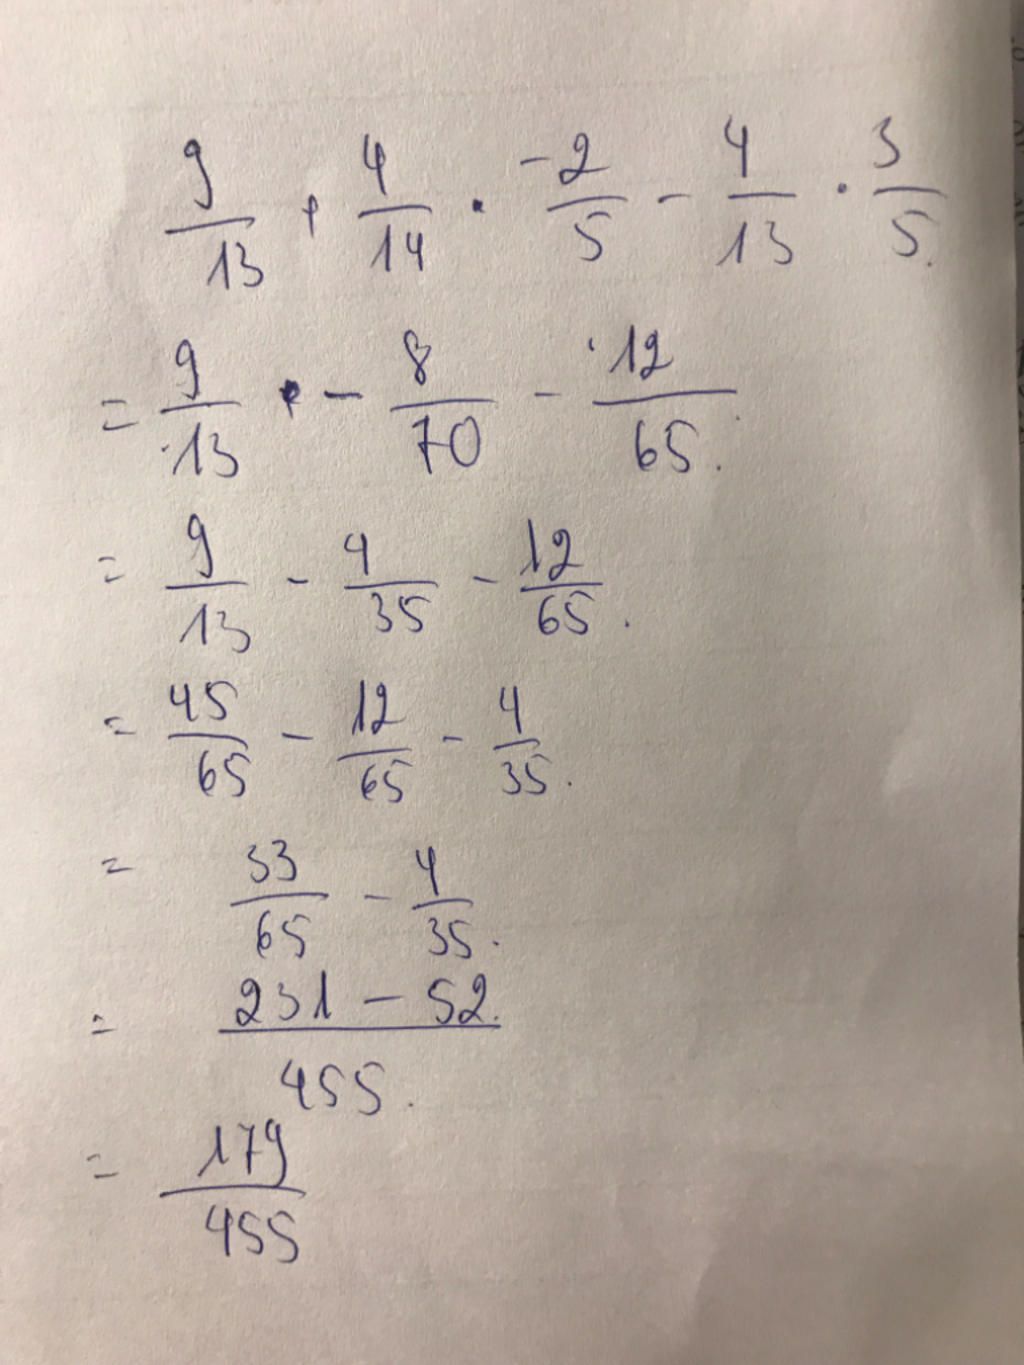 9/13 + 4/14 · -2/5 - 4/13 · 3/5.
= 9/13 · - 8/70 - 12/65.
= 9/13 - 4/35 - 12/65.
= 45/65 - 12/65 - 4/35.
= 33/65 - 4/35.
= 231 - 52./455.
= 179/455